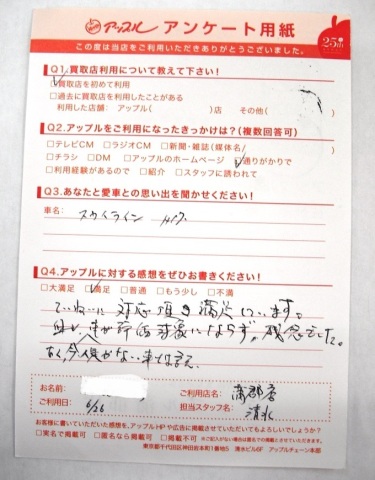 アップル アンケート用紙
25th
この度は当店をご利用いただきありがとうございました。
Q1.買取店利用について教えて下さい!
□買取店を初めて利用
□過去に買取店を利用したことがある
利用した店舗: アップル( )店 その他( )
Q2.アップルをご利用になったきっかけは?(複数回答可)
□テレビCM □ラジオCM □新聞・雑誌(媒体名/ )
□チラシ □DM □アップルのホームページ □通りがかりで
□利用経験があるので □紹介 □スタッフに誘われて
Q3.あなたと愛車との思い出を聞かせください!
車名: スカイライン
Q4.アップルに対する感想をぜひお書きください!
□大満足 □満足 □普通 □もう少し □不満
ていねいに対応頂き満足しています。
評価対象にならず。残念でした。
お名前:
ご利用日: 6/26
ご利用店名: 蒲郡店
担当スタッフ名: 清水
お客様に書いていただいた感想を、アップルHPや広告に掲載させていただいてもよろしいでしょうか?
□実名で掲載可 □匿名なら掲載可 □掲載不可 ※ご記入がない場合は匿名での掲載とさせていただきます。
東京都千代田区神田岩本町1番地5 清水ビル6F アップルチェーン本部